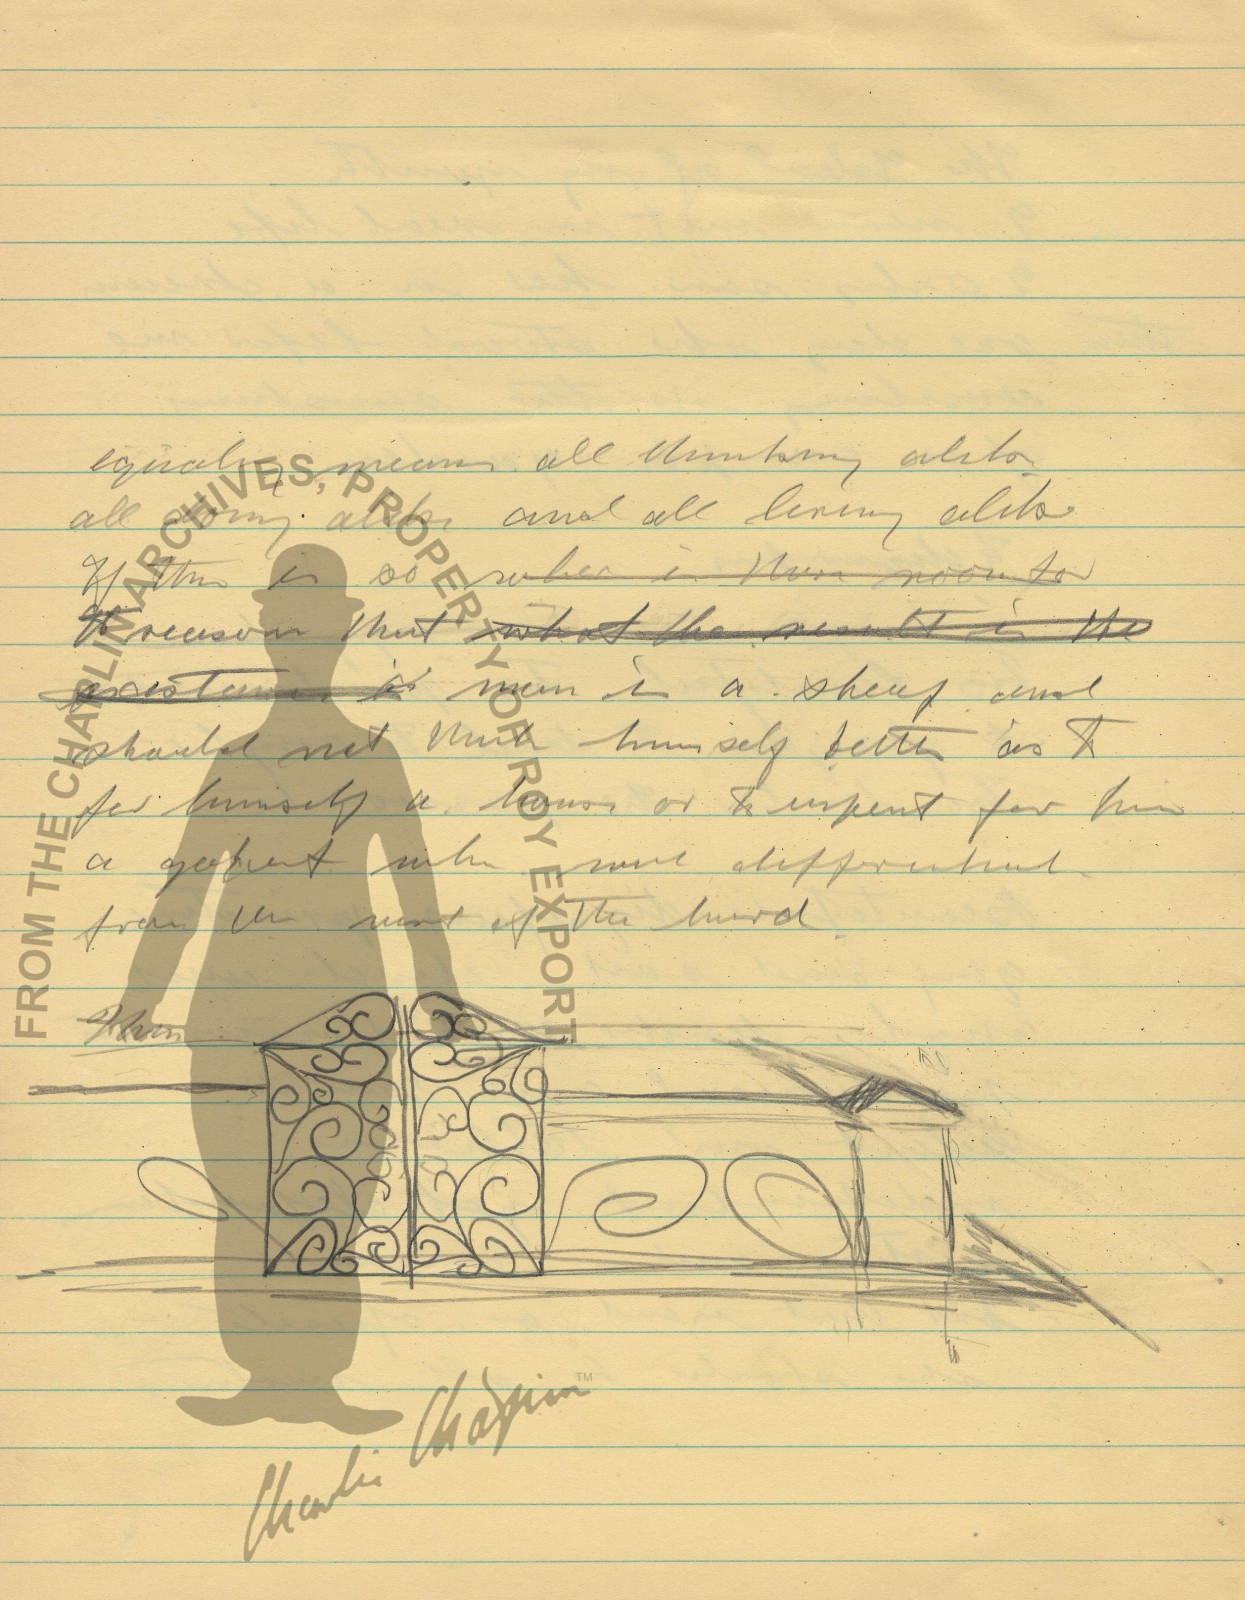 equality means all thinking alike
all doing alike and all living alike
If this is so where is there room for
To reason that what the result is the
existence is man is a sheep and
should not think himself better as to
for himself a house or to expect for him
a
from the rest of the herd
FROM THE CHAPLIN ARCHIVES, PROPERTY OF ROY EXPORT
Charlie Chaplin™